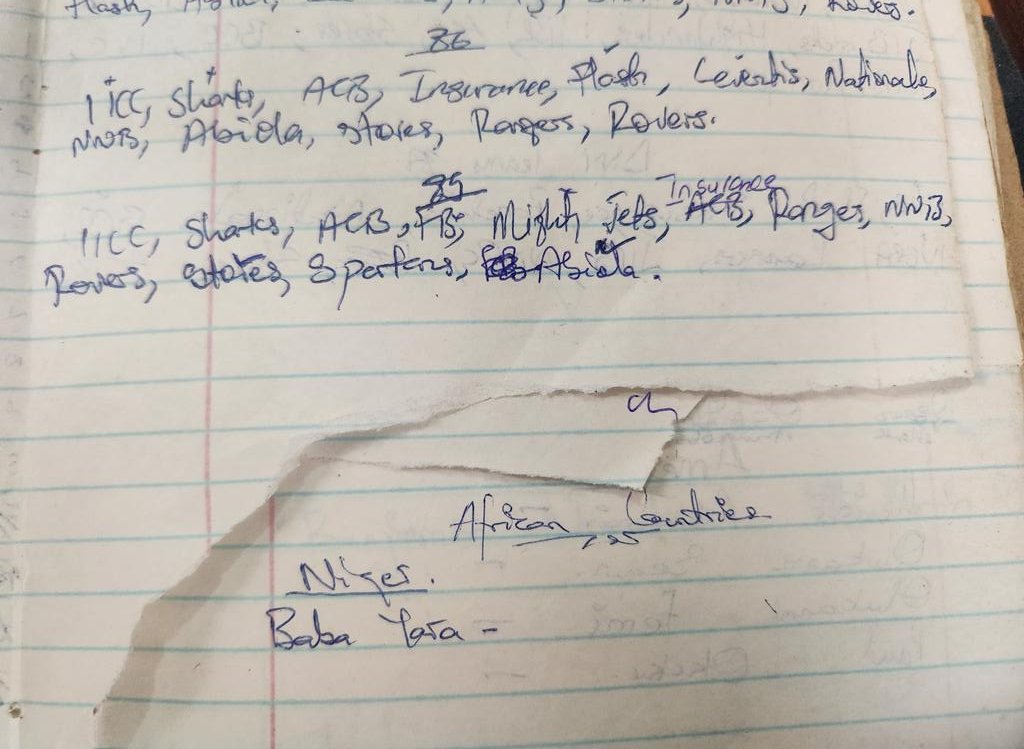 Flash,
Rovers.
86
IICC, Sharks, ACB, Insurance, Flash, Leventis, Nationale,
NNB, Abiola, stores, Rangers, Rovers.
85
Insurance
IICC, Sharks, ACB, FB, Mighty Jets, ACB, Ranges, NNB,
Rovers, stores, Spartans, Abiola.
African Countries
Niger.
Baba Yara -